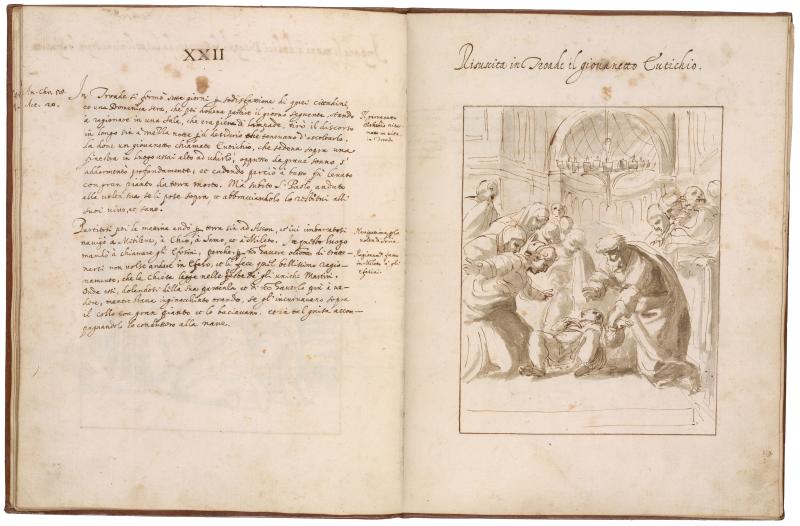 XXII
An. Chr. 58.
Act. 20.
In Troade si fermò sette giorni p sodisfazione di quei cittadini,
et una Domenica sera, che poi doveva partire il giorno seguente, stando
a ragionare in una sala, che era piena di lampade, tirò il discorso
in lungo sin a mezza notte p il desiderio che tenevano d'ascoltarlo.
La dove un giovanetto chiamato Eutichio, che sedeva sopra una
finestra in luogo assai alto ad udirlo, oppresso da grave sonno, s'
addormentò profondamente, et cadendo perciò a basso fù levato
con gran pianto da terra morto. Ma subito S. Paolo andato
alla volta sua se li pose sopra, et abbracciandolo lo restituì alli
suoi vivo, et sano.
Il giovanetto
Eutichio
in Troade
Partitosi poi la matina andò p terra sin ad Asson, et ivi imbarcatosi
navigò a Mitilene, à Chio, à Samo, et à Mileto. In questo luogo
mandò à chiamare gli Efesini, perche
nersi non volse andare in Efeso, et li fece quel bellissimo ragio-
namento, che la Chiesa legge nelle feste
Onde essi, dolendosi della sua partenza, et di non haverlo più à ve-
dere, mentre stava inginocchiato orando, se gli incurvavano sopra
il collo con gran pianto et lo baciavano. et in tal guisa accom-
pagnandolo lo condussero alla nave.
Navigazione
Ragionamento
in Mileto à gli
Efesini
Risuscita in Troade il giovanetto Eutichio.